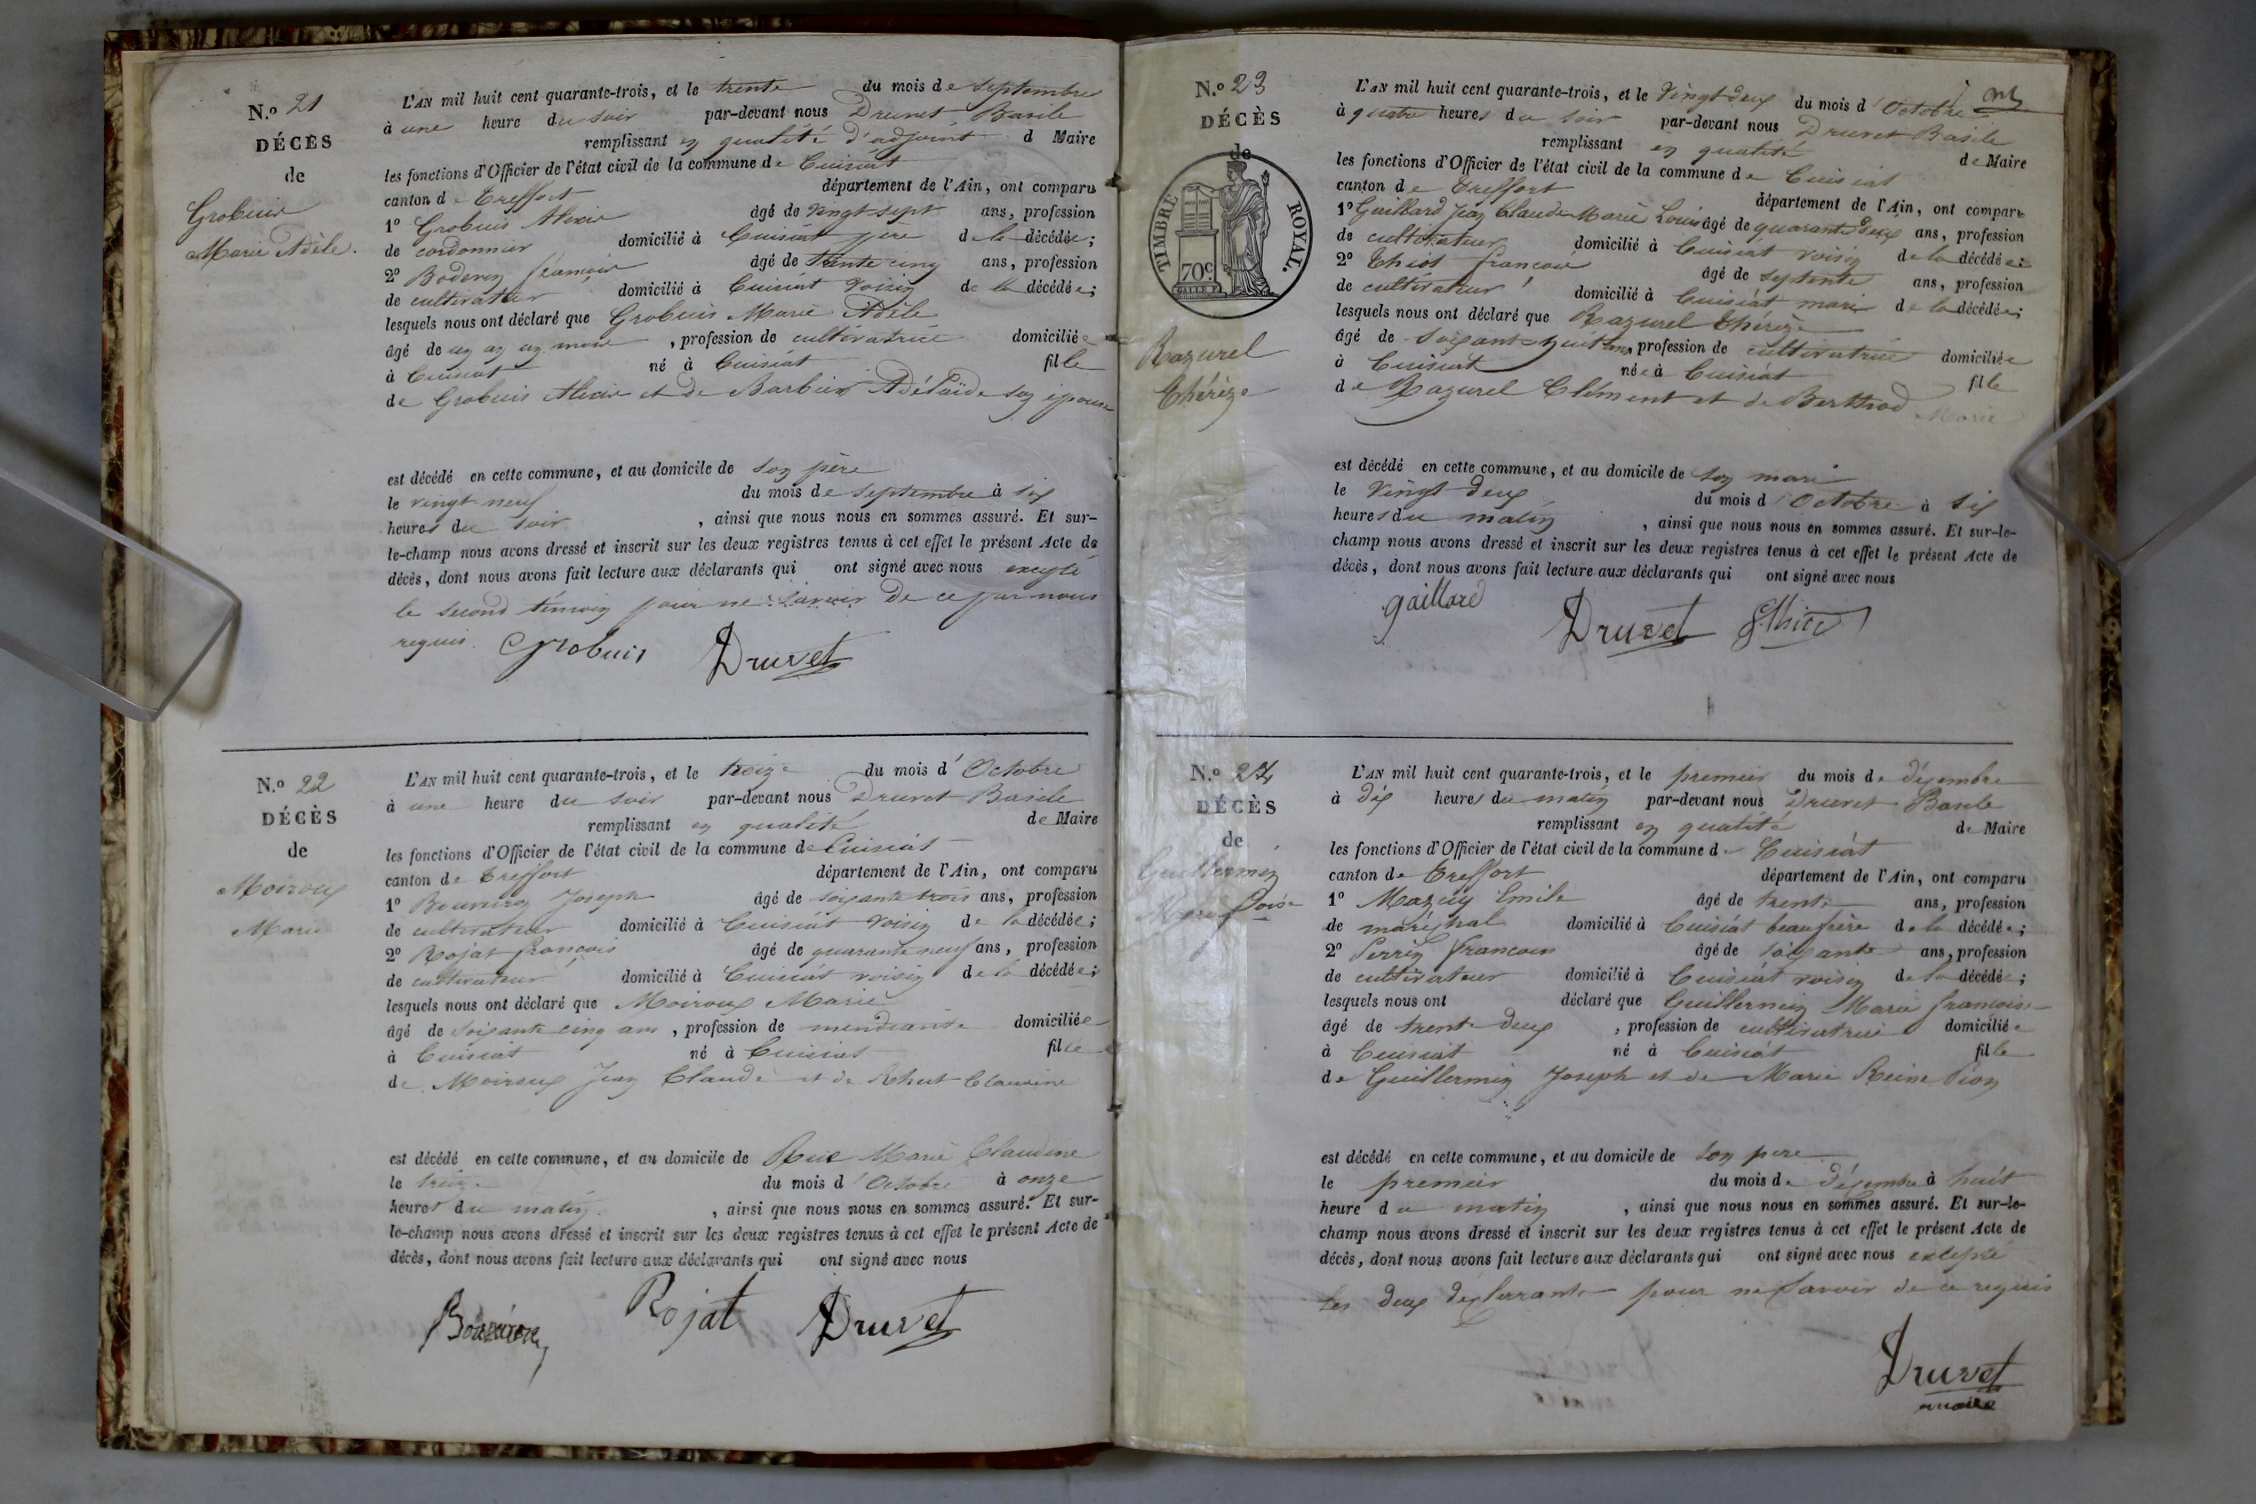 N.º 21
DÉCÈS
de
Grobuis
Marie Adèle.
L'AN mil huit cent quarante-trois, et le trente du mois de Septembre
à une heure du soir par-devant nous Druvet Basile
remplissant en qualité d'adjoint d Maire
les fonctions d'Officier de l'état civil de la commune de Cuisiat
canton de Treffort département de l'Ain, ont comparu
1º Grobuis Alexis âgé de vingt sept ans, profession
de cordonnier domicilié à Cuisiat père de la décédée;
2º françois âgé de trente cinq ans, profession
de cultivateur domicilié à Cuisiat voisin de la décédée;
lesquels nous ont déclaré que Grobuis Marie Adèle
âgé de un an un mois, profession de cultivatrice domiciliée
à Cuisiat né à Cuisiat fille
de Grobuis Alexis et de Barbier Adélaïde son épouse
est décédé en cette commune, et au domicile de son père
le vingt neuf du mois de septembre à six
heures du soir, ainsi que nous nous en sommes assuré. Et sur-
le-champ nous avons dressé et inscrit sur les deux registres tenus à cet effet le présent Acte de
décès, dont nous avons fait lecture aux déclarants qui ont signé avec nous excepté
le second témoin pour ne savoir de ce par nous
requis. Grobuis Druvet
N.º 22
DÉCÈS
de
Moiroux
Marie
L'AN mil huit cent quarante-trois, et le treize du mois d'Octobre
à une heure du soir par-devant nous Druvet Basile
remplissant en qualité de Maire
les fonctions d'Officier de l'état civil de la commune de Cuisiat
canton de Treffort département de l'Ain, ont comparu
1º Joseph âgé de soixante trois ans, profession
de cultivateur domicilié à Cuisiat voisin de la décédée;
2º Rojat françois âgé de quarante neuf ans, profession
de cultivateur domicilié à Cuisiat voisin de la décédée;
lesquels nous ont déclaré que Moiroux Marie
âgé de soixante cinq ans, profession de mendiante domiciliée
à Cuisiat né à Cuisiat fille
de Moiroux Jean Claude et de Claudine
est décédé en cette commune, et au domicile de Marie Claudine
le treize du mois d'Octobre à onze
heures du matin, ainsi que nous nous en sommes assuré. Et sur-
le-champ nous avons dressé et inscrit sur les deux registres tenus à cet effet le présent Acte de
décès, dont nous avons fait lecture aux déclarants qui ont signé avec nous
Rojat Druvet
N.º 23
DÉCÈS
de
TIMBRE ROYAL.
70c.
Razurel
Thérèze
L'AN mil huit cent quarante-trois, et le vingt deux du mois d'Octobre
à quatre heures du soir par-devant nous Druvet Basile
remplissant en qualité de Maire
les fonctions d'Officier de l'état civil de la commune de Cuisiat
canton de Treffort département de l'Ain, ont comparu
1º Gaillard Jean Claude Marie Louis âgé de quarante deux ans, profession
de cultivateur domicilié à Cuisiat voisin de la décédée;
2º françois âgé de septante ans, profession
de cultivateur domicilié à Cuisiat mari de la décédée;
lesquels nous ont déclaré que Razurel Thérèze
âgé de soixante huit ans, profession de cultivatrice domiciliée
à Cuisiat née à Cuisiat fille
de Razurel Clément et de Berthod Marie
est décédé en cette commune, et au domicile de son mari
le vingt deux du mois d'Octobre à six
heures du matin, ainsi que nous nous en sommes assuré. Et sur-le-
champ nous avons dressé et inscrit sur les deux registres tenus à cet effet le présent Acte de
décès, dont nous avons fait lecture aux déclarants qui ont signé avec nous
gaillard Druvet
N.º 24
DÉCÈS
de
Guillermin
L'AN mil huit cent quarante-trois, et le premier du mois de décembre
à dix heures du matin par-devant nous Druvet Basile
remplissant en qualité de Maire
les fonctions d'Officier de l'état civil de la commune de Cuisiat
canton de Treffort département de l'Ain, ont comparu
1º Mazuy Emile âgé de trente ans, profession
de maréchal domicilié à Cuisiat beaufrère de la décédée;
2º Perrin francois âgé de soixante ans, profession
de cultivateur domicilié à Cuisiat voisin de la décédée;
lesquels nous ont déclaré que Guillermin Marie françoise
âgé de trente deux, profession de cultivatrice domiciliée
à Cuisiat né à Cuisiat fille
de Guillermin Joseph et de Marie Reine Pion
est décédé en cette commune, et au domicile de son père
le premier du mois de décembre à huit
heure du matin, ainsi que nous nous en sommes assuré. Et sur-le-
champ nous avons dressé et inscrit sur les deux registres tenus à cet effet le présent Acte de
décès, dont nous avons fait lecture aux déclarants qui ont signé avec nous excepté
les deux déclarrants pour ne savoir de ce requis
Druvet
maire